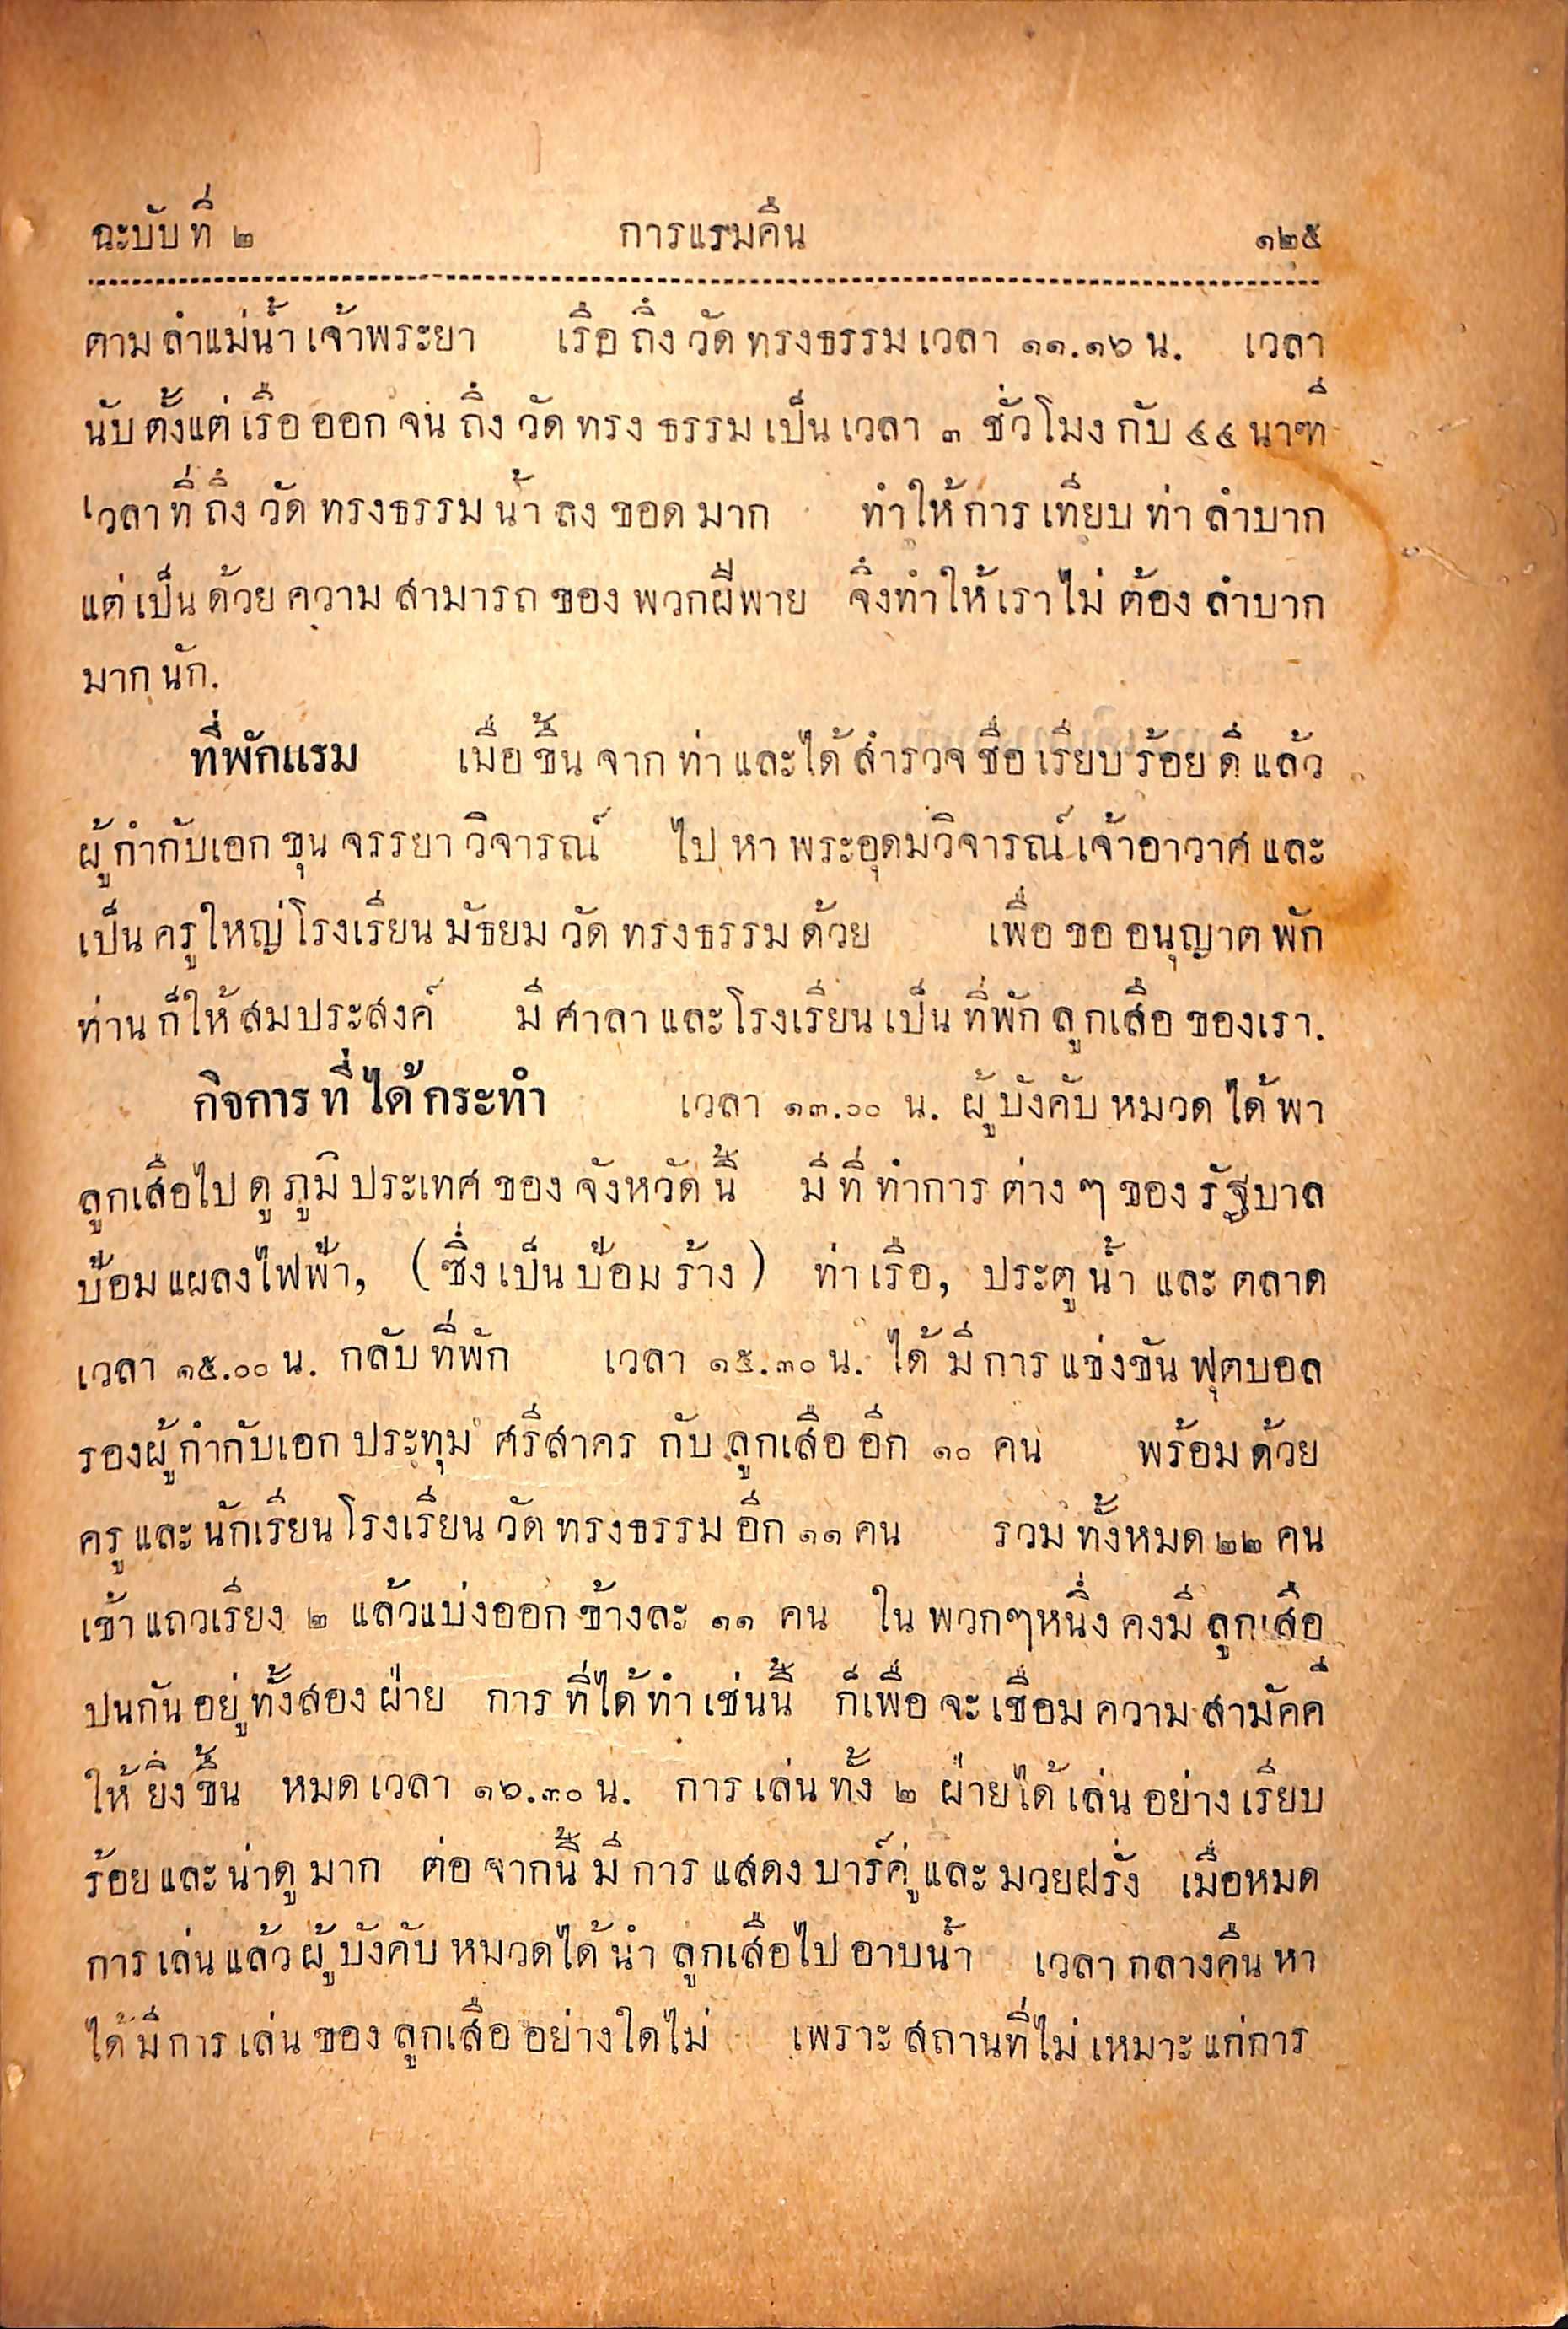 ฉะบับที่ ๒ การแรมคืน ๑๒๕
ตามลำแม่น้ำเจ้าพระยา เรือถึงวัดทรงธรรมเวลา ๑๑.๑๖ น. เวลา
นับตั้งแต่เรือออกจนถึงวัดทรงธรรมเป็นเวลา ๓ ชั่วโมงกับ ๔๔ นาฑี
เวลาที่ถึงวัดทรงธรรมน้ำลงขอดมาก ทำให้การเทียบท่าลำบาก
แต่เป็นด้วยความสามารถของพวกฝีพาย จึงทำให้เราไม่ต้องลำบาก
มากนัก.
ที่พักแรม เมื่อขึ้นจากท่าและได้สำรวจชื่อเรียบร้อยดีแล้ว
ผู้กำกับเอกขุนจรรยาวิจารณ์ ไปหาพระอุดมวิจารณ์เจ้าอาวาศและ
เป็นครูใหญ่โรงเรียนมัธยมวัดทรงธรรมด้วย เพื่อขออนุญาตพัก
ท่านก็ให้สมประสงค์ มีศาลาและโรงเรียนเป็นที่พักลูกเสือของเรา.
กิจการที่ได้กระทำ เวลา ๑๓.๐๐ น. ผู้บังคับหมวดได้พา
ลูกเสือไปดูภูมิประเทศของจังหวัดนี้ มีที่ทำการต่างๆของรัฐบาล
ป้อมแผลงไฟฟ้า, (ซึ่งเป็นป้อมร้าง) ท่าเรือ, ประตูน้ำ และตลาด
เวลา ๑๕.๐๐ น. กลับที่พัก เวลา ๑๕.๓๐ น. ได้มีการแข่งขันฟุตบอล
รองผู้กำกับเอกประทุม ศรีสาคร กับลูกเสืออีก ๑๐ คน พร้อมด้วย
ครูและนักเรียนโรงเรียนวัดทรงธรรมอีก ๑๑ คน รวมทั้งหมด ๒๒ คน
เข้าแถวเรียง ๒ แล้วแบ่งออกข้างละ ๑๑ คน ในพวกๆหนึ่งคงมีลูกเสือ
ปนกันอยู่ทั้งสองฝ่าย การที่ได้ทำเช่นนี้ ก็เพื่อจะเชื่อมความสามัคคี
ให้ยิ่งขึ้น หมดเวลา ๑๖.๓๐ น. การเล่นทั้ง ๒ ฝ่ายได้เล่นอย่างเรียบ
ร้อยและน่าดูมาก ต่อจากนี้มีการแสดงบาร์คู่และมวยฝรั่ง เมื่อหมด
การเล่นแล้วผู้บังคับหมวดได้นำลูกเสือไปอาบน้ำ เวลากลางคืนหา
ได้มีการเล่นของลูกเสืออย่างใดไม่ เพราะสถานที่ไม่เหมาะแก่การ